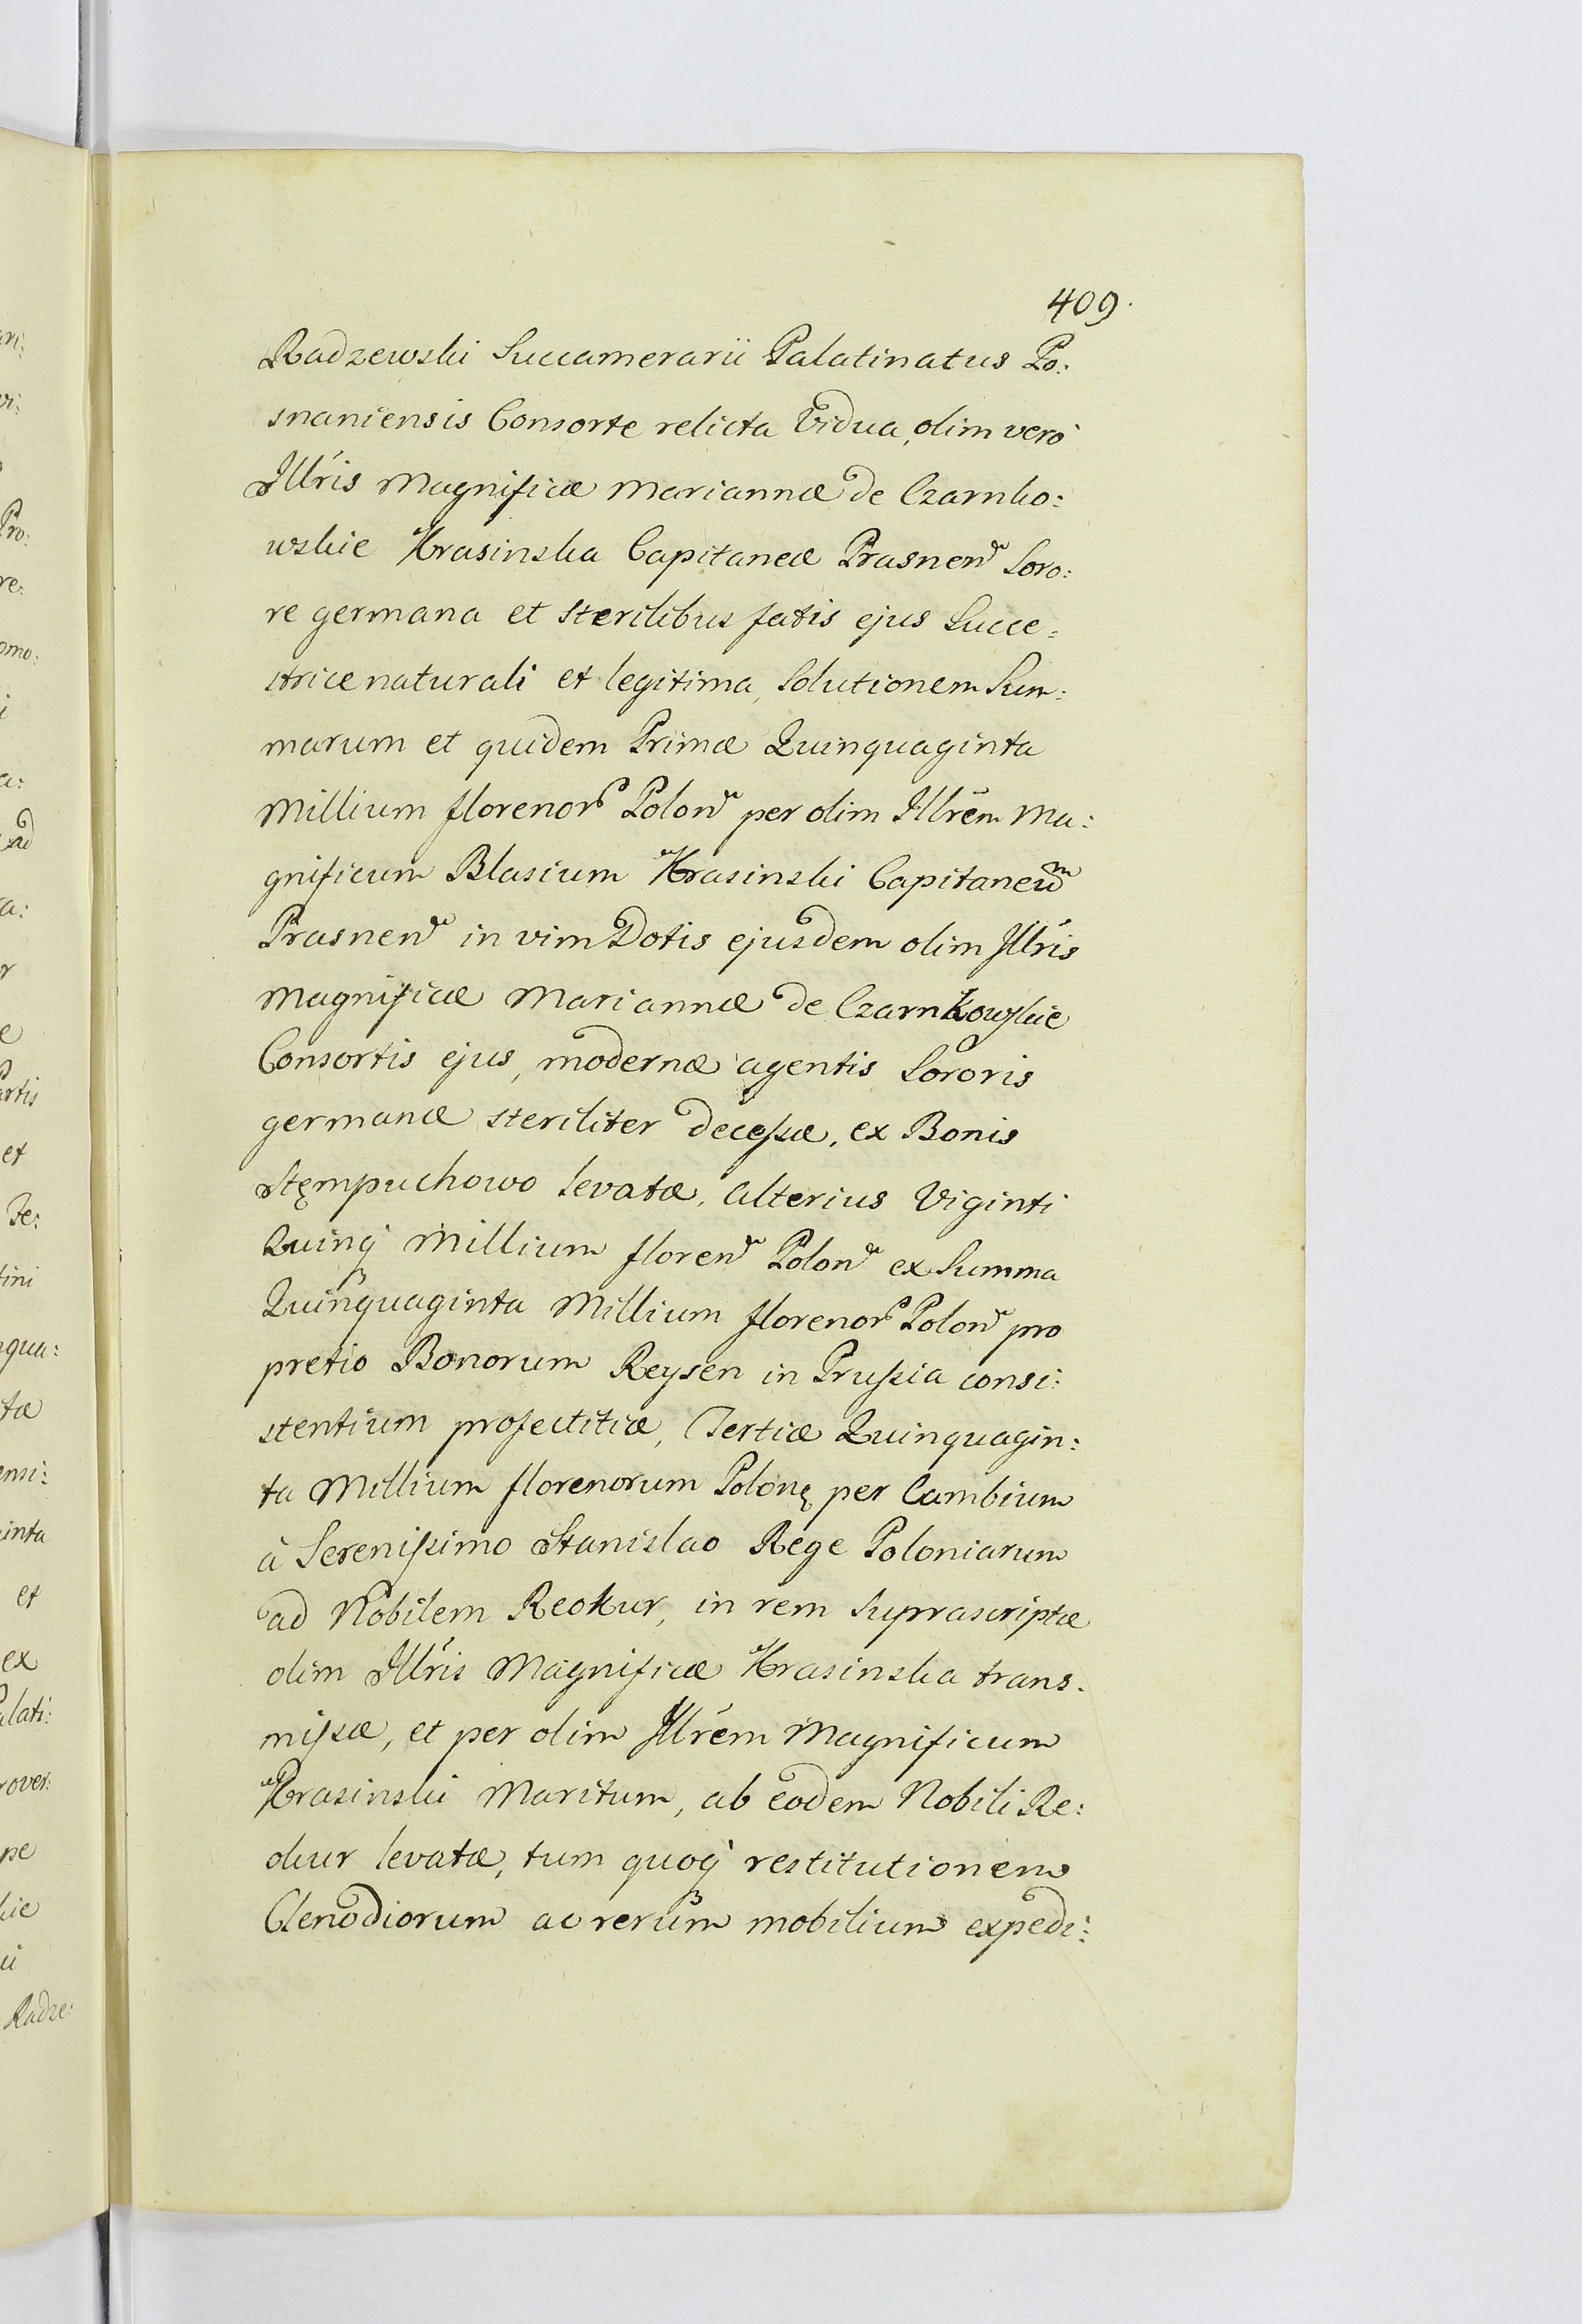 409.
Radzewski Succamerarii Palatinatus Po:
snaniensis Consorte relicta Vidua, olim verò
Illris Magnificæ Mariannæ de Czarnko:
wskie Krasinska Capitaneæ Prasnen Soro:
re germana et sterilibus fatis ejus Succe:
strice naturali et legitima, Solutionem Sum:
marum et quidem Primæ Quinquaginta
Millium florenor Polon per olim Illrem Ma:
gnificum Blasium Krasinski Capitaneum
Prasnen in vim Dotis ejusdem olim Illris
Magnificæ Mariannæ de Czarnkowskie
Consortis ejus, modernæ agentis Sororis
germanæ steriliter decessæ, ex Bonis
Stęmpuchowo levatæ, alterius Viginti
Quinq Millium floren Polon ex Summa
Quinquaginta Millium florenor Polon pro
pretio Bonorum Reysen in Prussia consi:
stentium profectitiæ, Tertiæ Quinquagin:
ta Millium florenorum Polonę per Cambium
à Serenissimo Stanislao Rege Poloniarum
ad Nobilem Reokur, in rem suprascriptæ
olim Illris Magnificæ Krasinska trans.
missæ, et per olim Illrem Magnificum
Krasinski Maritum, ab eodem Nobili Re:
okur levatæ, tum quoq restitutionem
Clenodiorum ac rerum mobilium expedi:
an:
vi:
Pro:
re:
omo:
i
a:
ad
a:
r
e
artis
et
Te:
tini
nqua:
tæ
ensi:
inta
et
ex
alati:
rover:
pe
kie
ii
Radze: